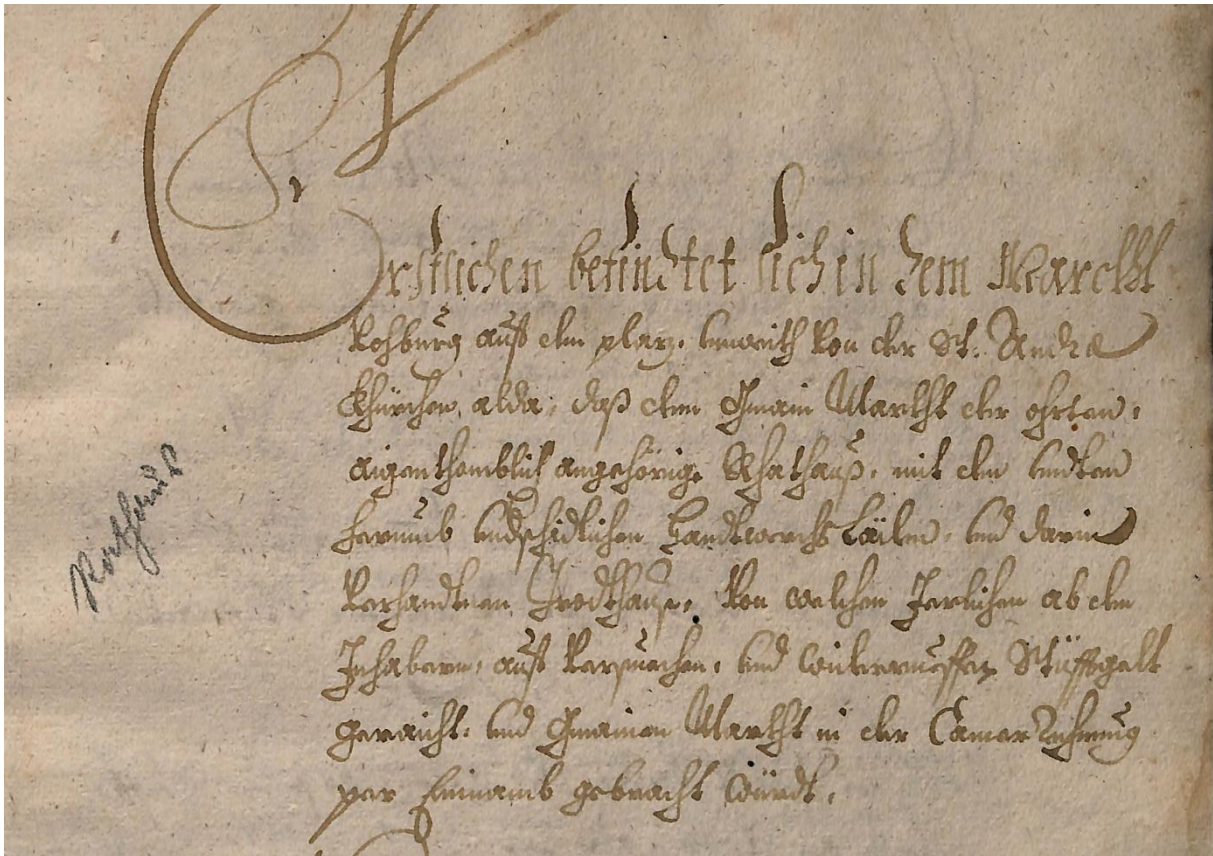 Erstlichen befindtet sich in dem Marckht
Vohburg auf dem plaz, unweith von der St: Andræ
Khürchen, alda, daß dem Gmain Markht der ohrten,
aigenthomblich angehörige Rhathauß, mit den undten
herumb undschidlichen Handtwerchs Läden, und darin
Verhandtnen Prodthauß, Von welchen Jerlichen ab den
Inhabern, auf Versprechen, und widerrueffen Stüfftgelt
geraicht, und Gmainen Markht in der Camer Rechnung
per Einnamb gebracht würdt.
Rathaus